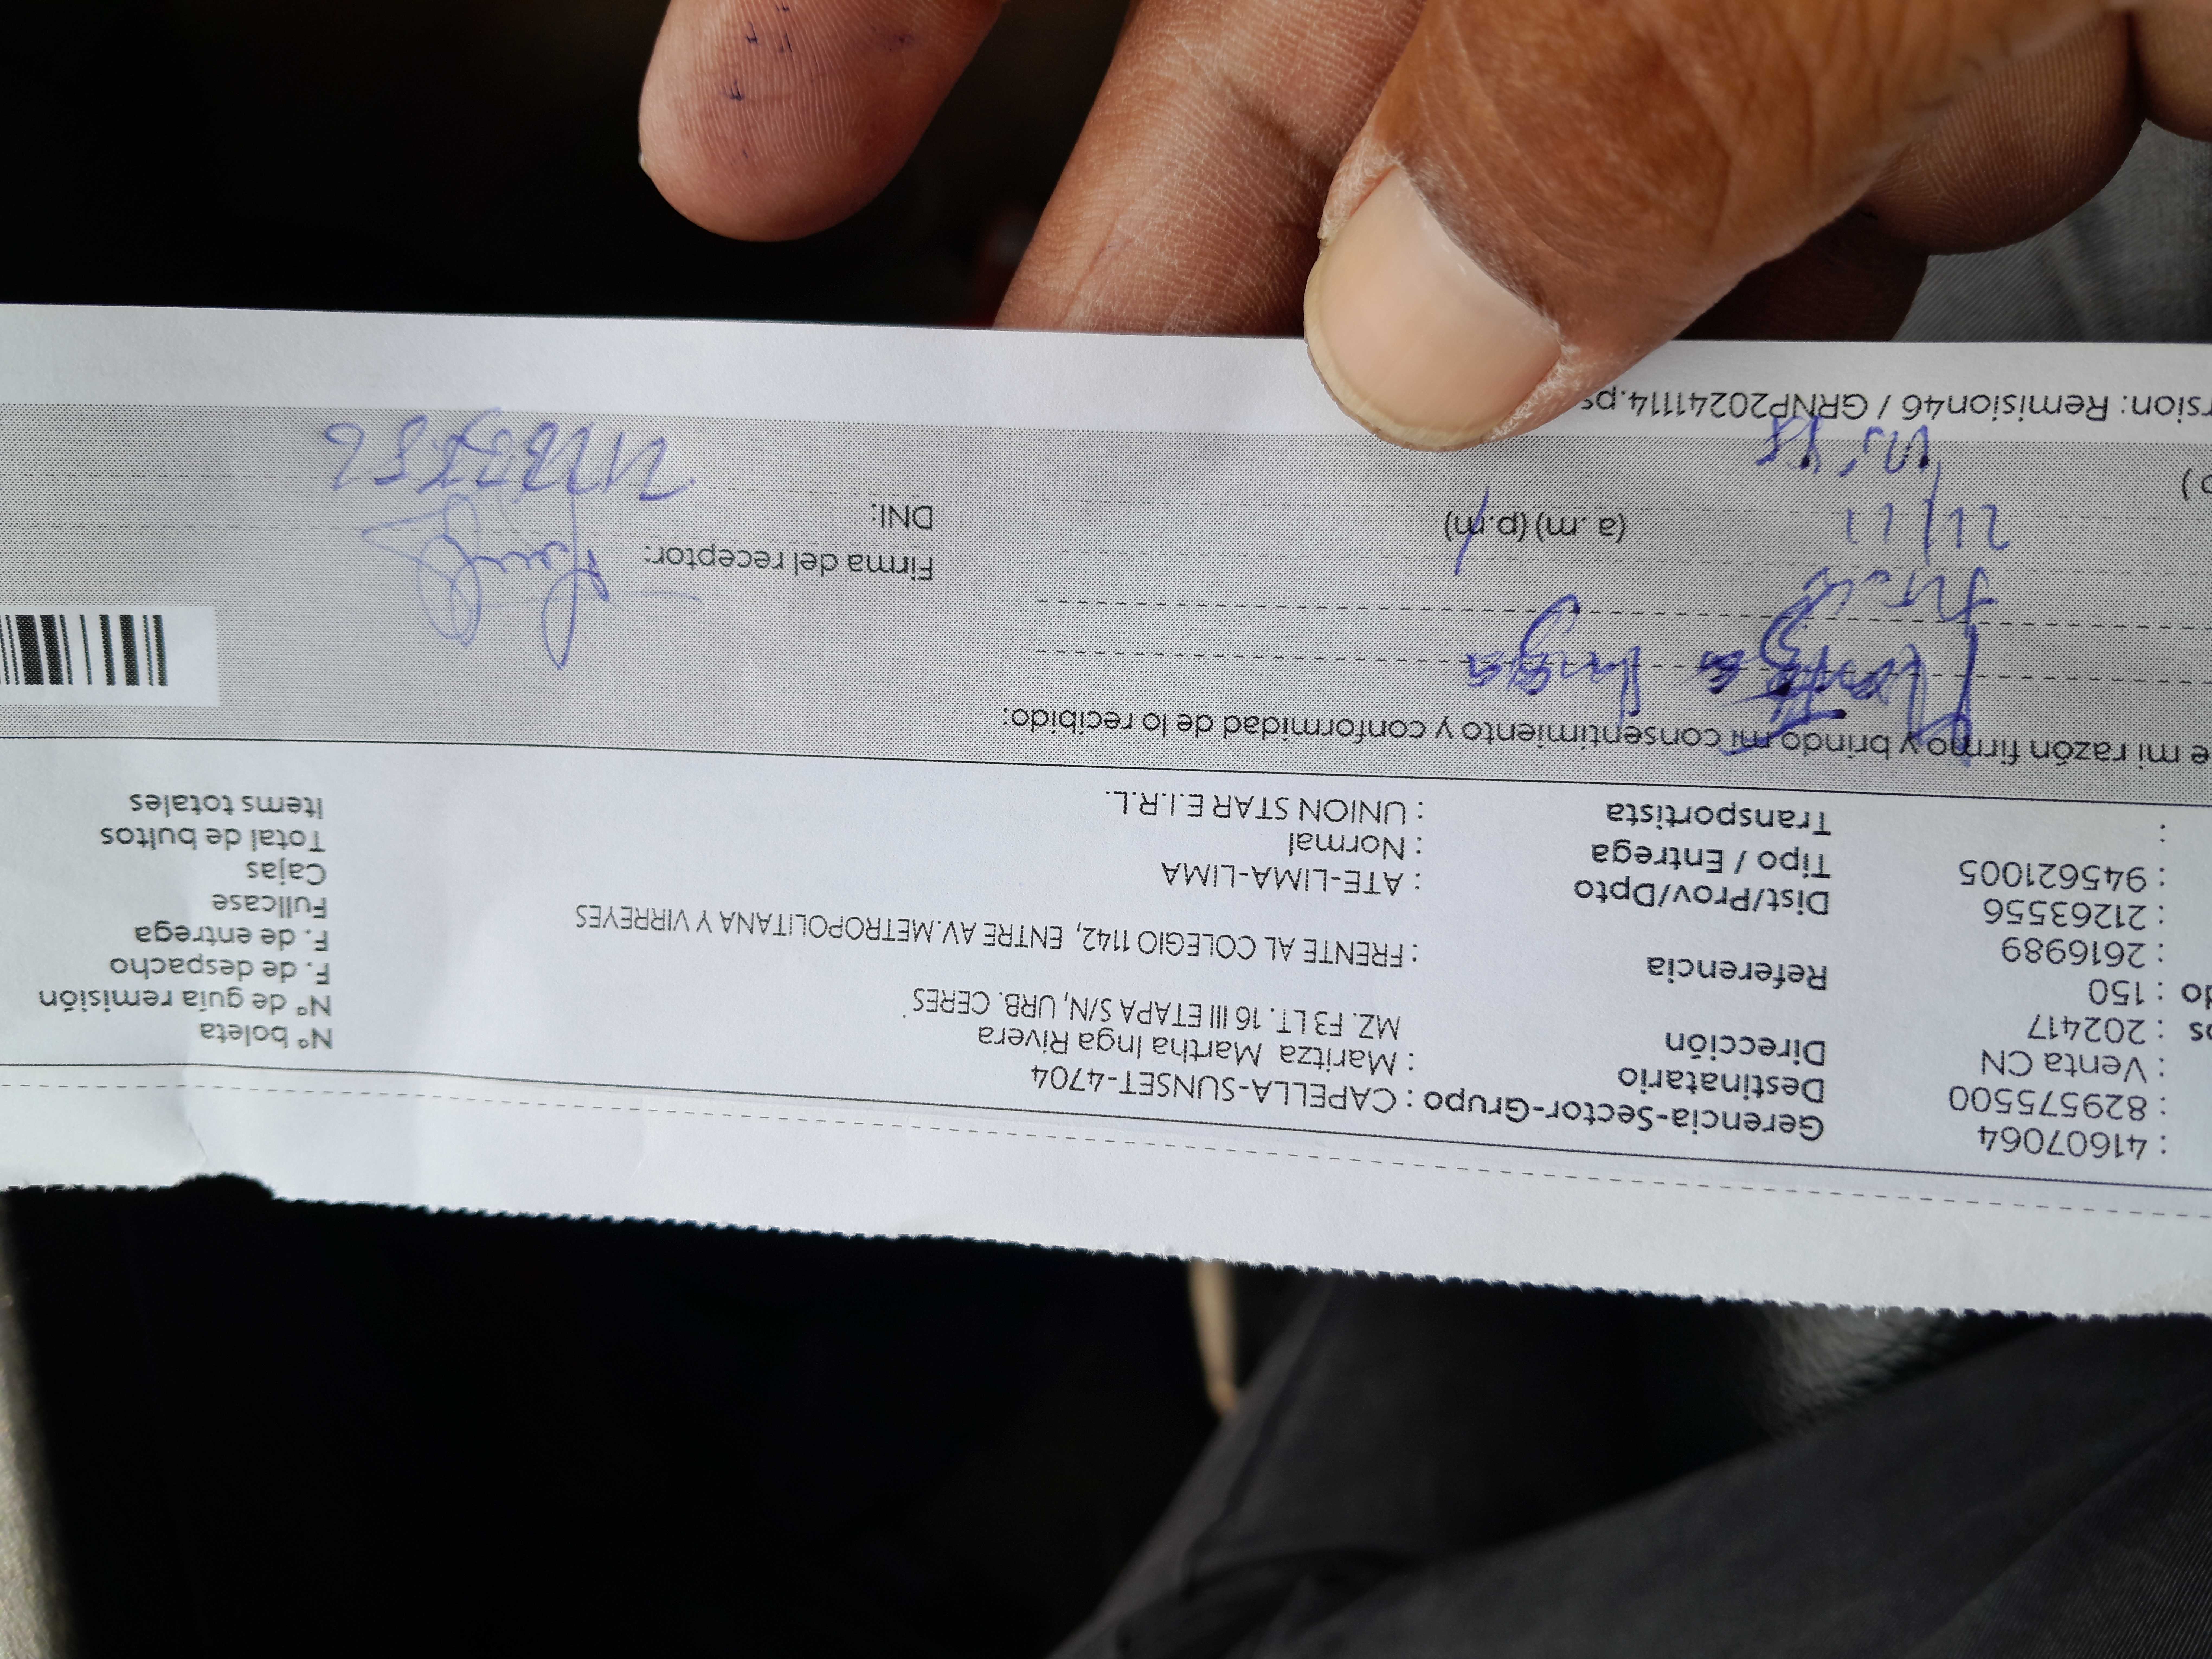 : 41607064 Gerencia-Sector-Grupo : CAPELLA-SUNSET-4704
: 829575500 Destinatario : Maritza Martha Inga Rivera Nº boleta
: Venta CN Dirección MZ. F3 LT. 16 III ETAPA S/N, URB. CERES. Nº de guía remisión
os : 202417 F. de despacho
do : 150 Referencia : FRENTE AL COLEGIO 1142, ENTRE AV.METROPOLITANA Y VIRREYES F. de entrega
: 2616989 Fullcase
: 21263556 Dist/Prov/Dpto : ATE-LIMA-LIMA Cajas
: 945621005 Tipo / Entrega : Normal Total de bultos
: Transportista : UNION STAR E.I.R.L. Items totales
e mi razón firmo y brindo mi consentimiento y conformidad de lo recibido:
Inga
Firma del receptor:
21/11 (a .m) (p.m) DNI:
rsion: Remision46 / GRNP20241114.ps